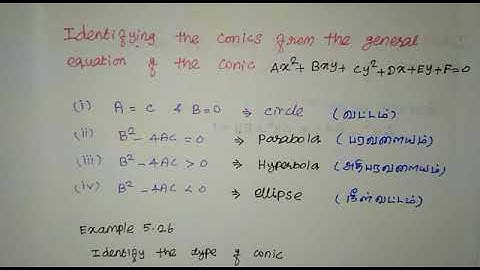 Identifying the conics from the general
equation of the conic Ax²+ Bxy+ Cy²+Dx+Ey+F=0
(i) A = C & B=0 ⇒ circle (வட்டம்)
(ii) B²- 4AC = 0 ⇒ Parabola (பரவளையம்)
(iii) B²- 4AC > 0 ⇒ Hyperbola (அதிபரவளையம்)
(iv) B² - 4AC < 0 ⇒ ellipse (நீள்வட்டம்)
Example 5.26
Identify the type of conic